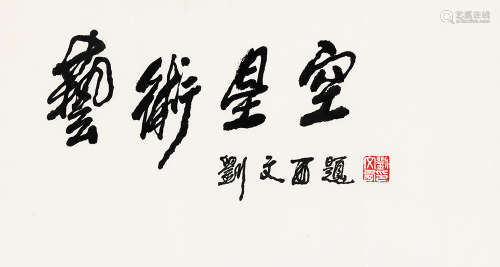 藝術星空
劉文西題